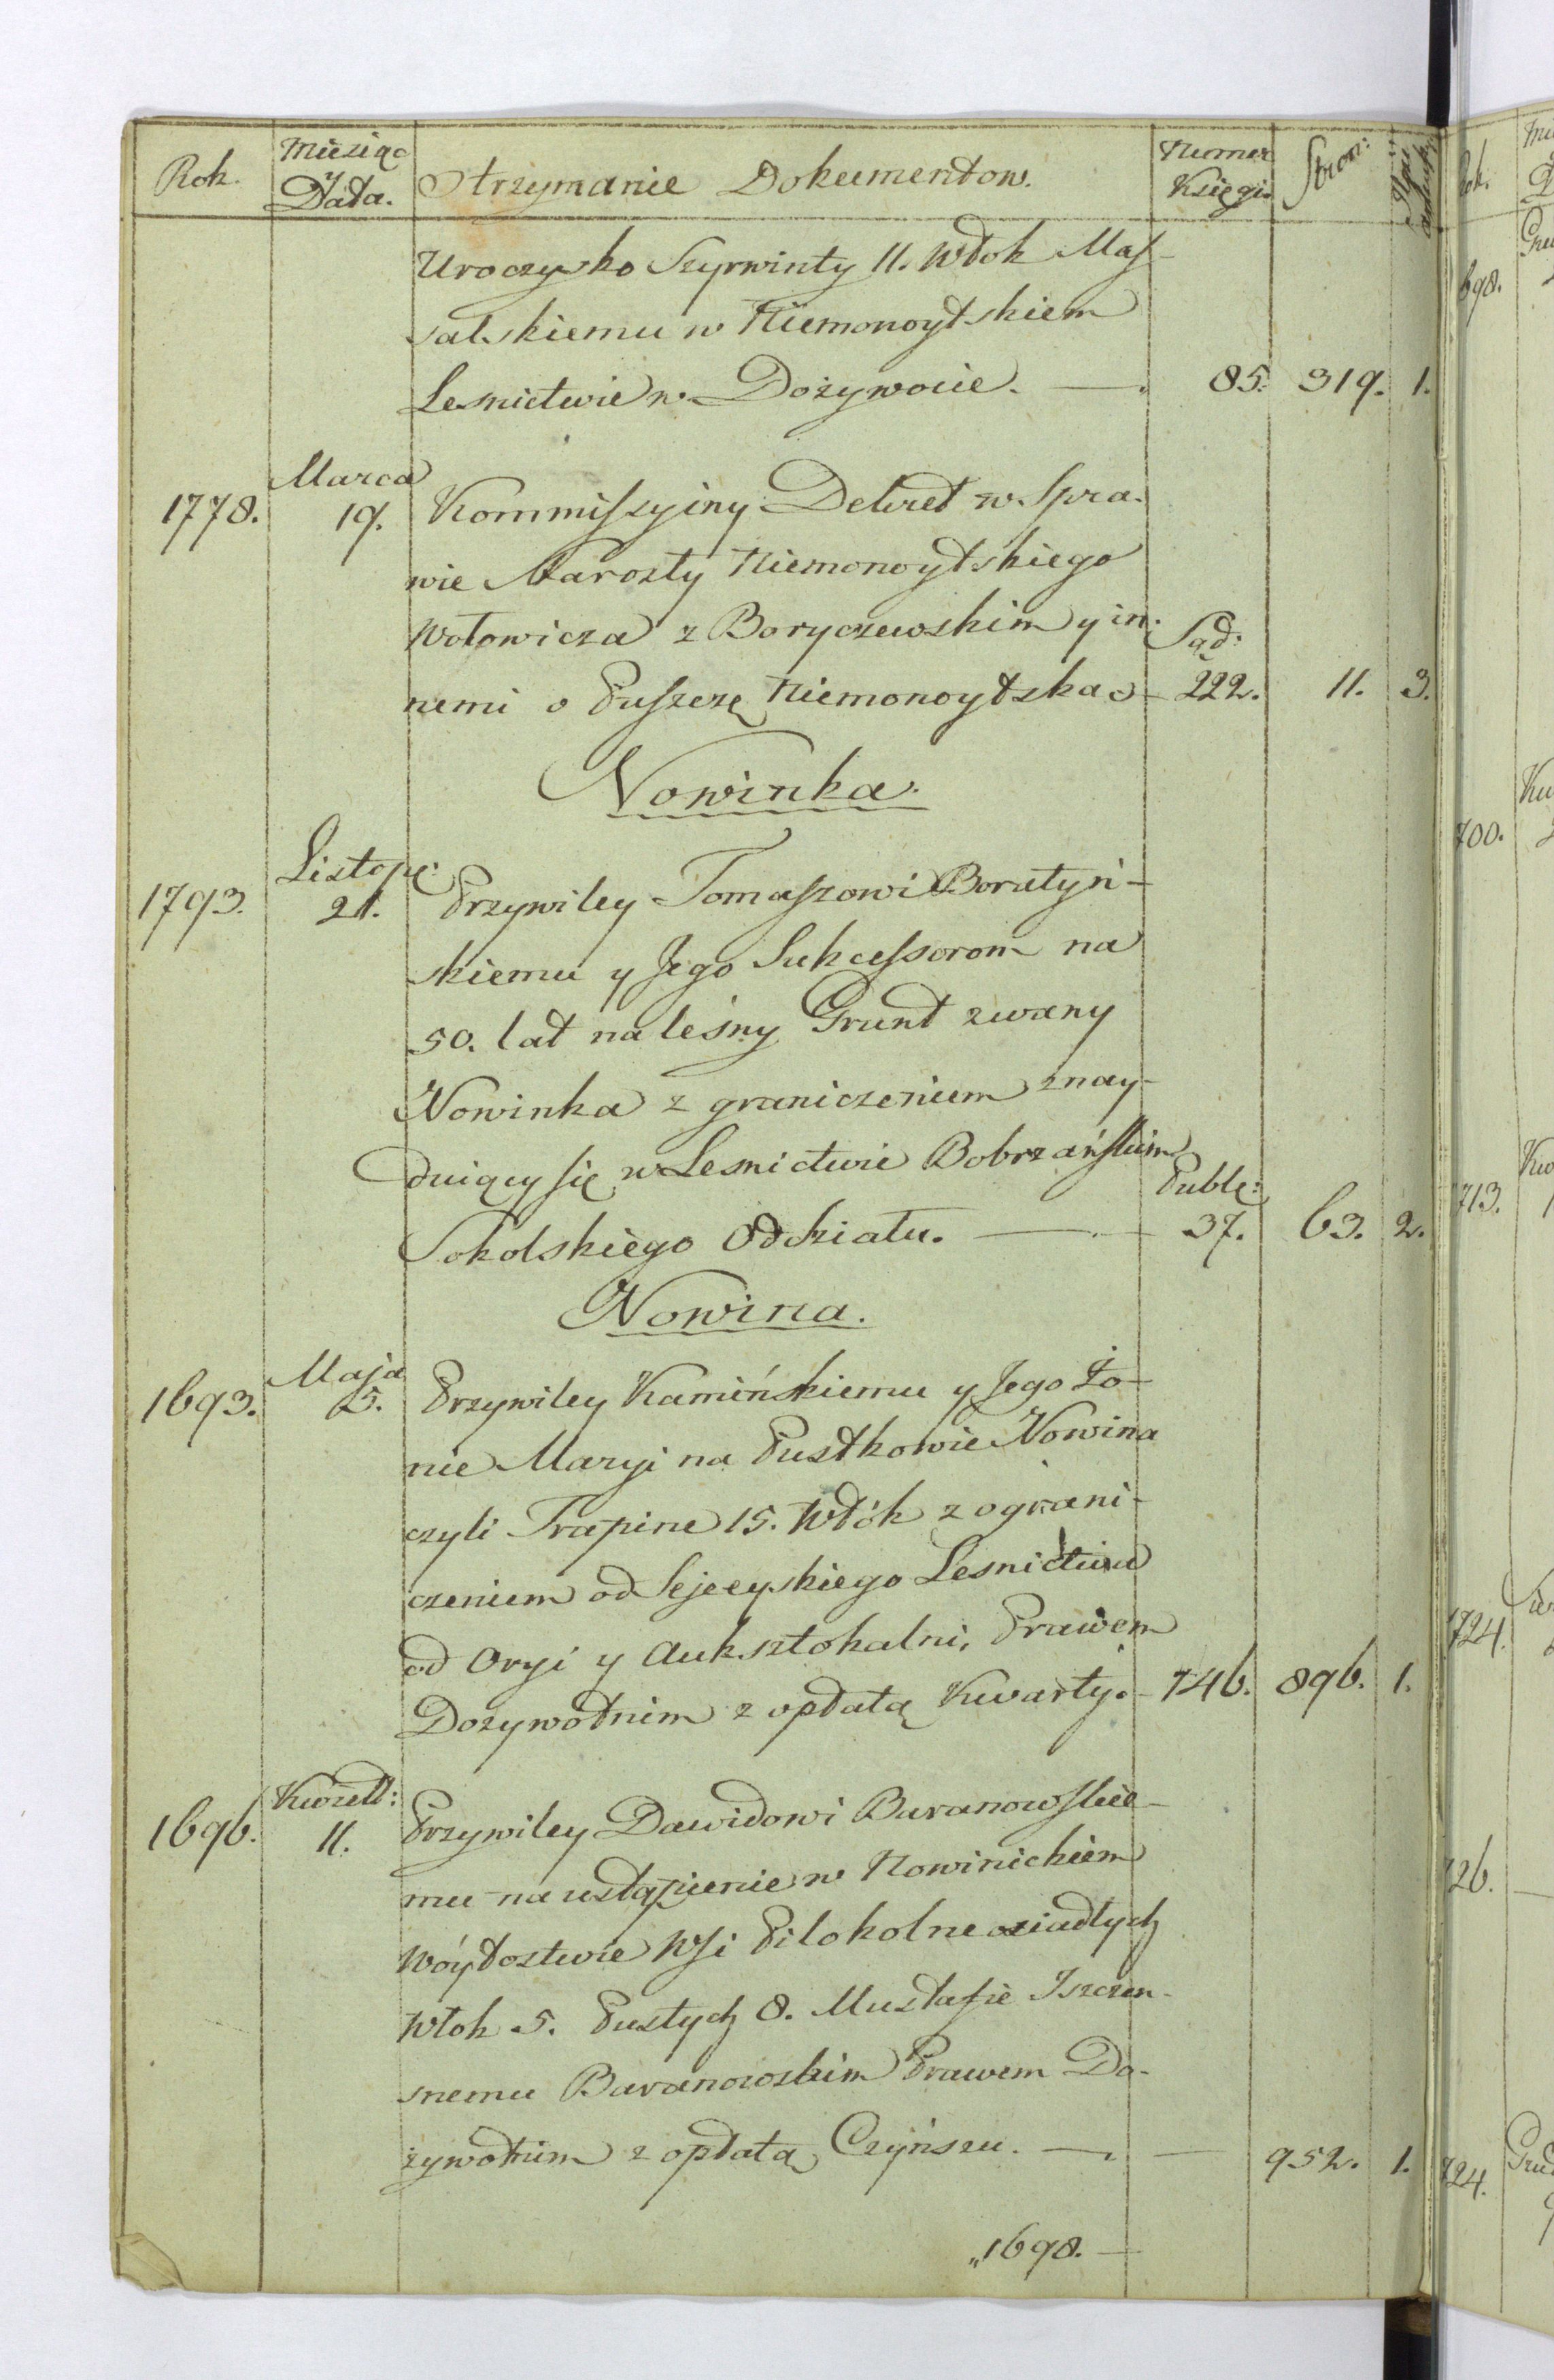 Rok. Miesiąc y Data. Otrzymanie Dokumentow. Numer Księgi. Stron:
Uroczysko Szyrwinty 11. Włok Mas-
salskiemu w Niemonoytskiem
Lesnictwie w Dożywocie. — 85. 319. 1.
Marca
1778. 19. Kommissyiny Dekret w Spra-
wie Starosty Niemonoytskiego
Wołowicza z Boryczewskim y in- Sąd:
nemi o Puszczę Niemonoytską — 222. 11. 3.
Nowinka.
Listop:
1793. 21. Przywiley TomaszowiBoratyń-
skiemu y Jego Sukcessorom na
50. lat na leśny Grunt zwany
Nowinka z graniczeniem znay-
duiący się w Lesnictwie Bobrzańskim Publ:
Sokolskiego Oddziału. — 37. 63. 2.
Nowina.
Maja
1693. 5. Przywiley Kamińskiemu y Jego Żo-
nie Maryi na Pustkowie Nowina
czyli Trapine 15. Włók z ograni-
czeniem od Sejeeyskiego Lesnictwa
od Oryi y Auksztokalni, Prawem
Dozywotnim z opłatą Kwarty. — 746. 896. 1.
Kwiet:
1696. 11. Przywiley Dawidowi Baranowskie-
mu na ustąpienie w Nowinickiem
Wóytostwie Wsi Pilokolne osiadłych
Włok 5. Pustych 8. Mustafie
Baranowskim Prawem Do-
żywotnim z opłatą Czynszu. — — 952. 1.
„1698. —